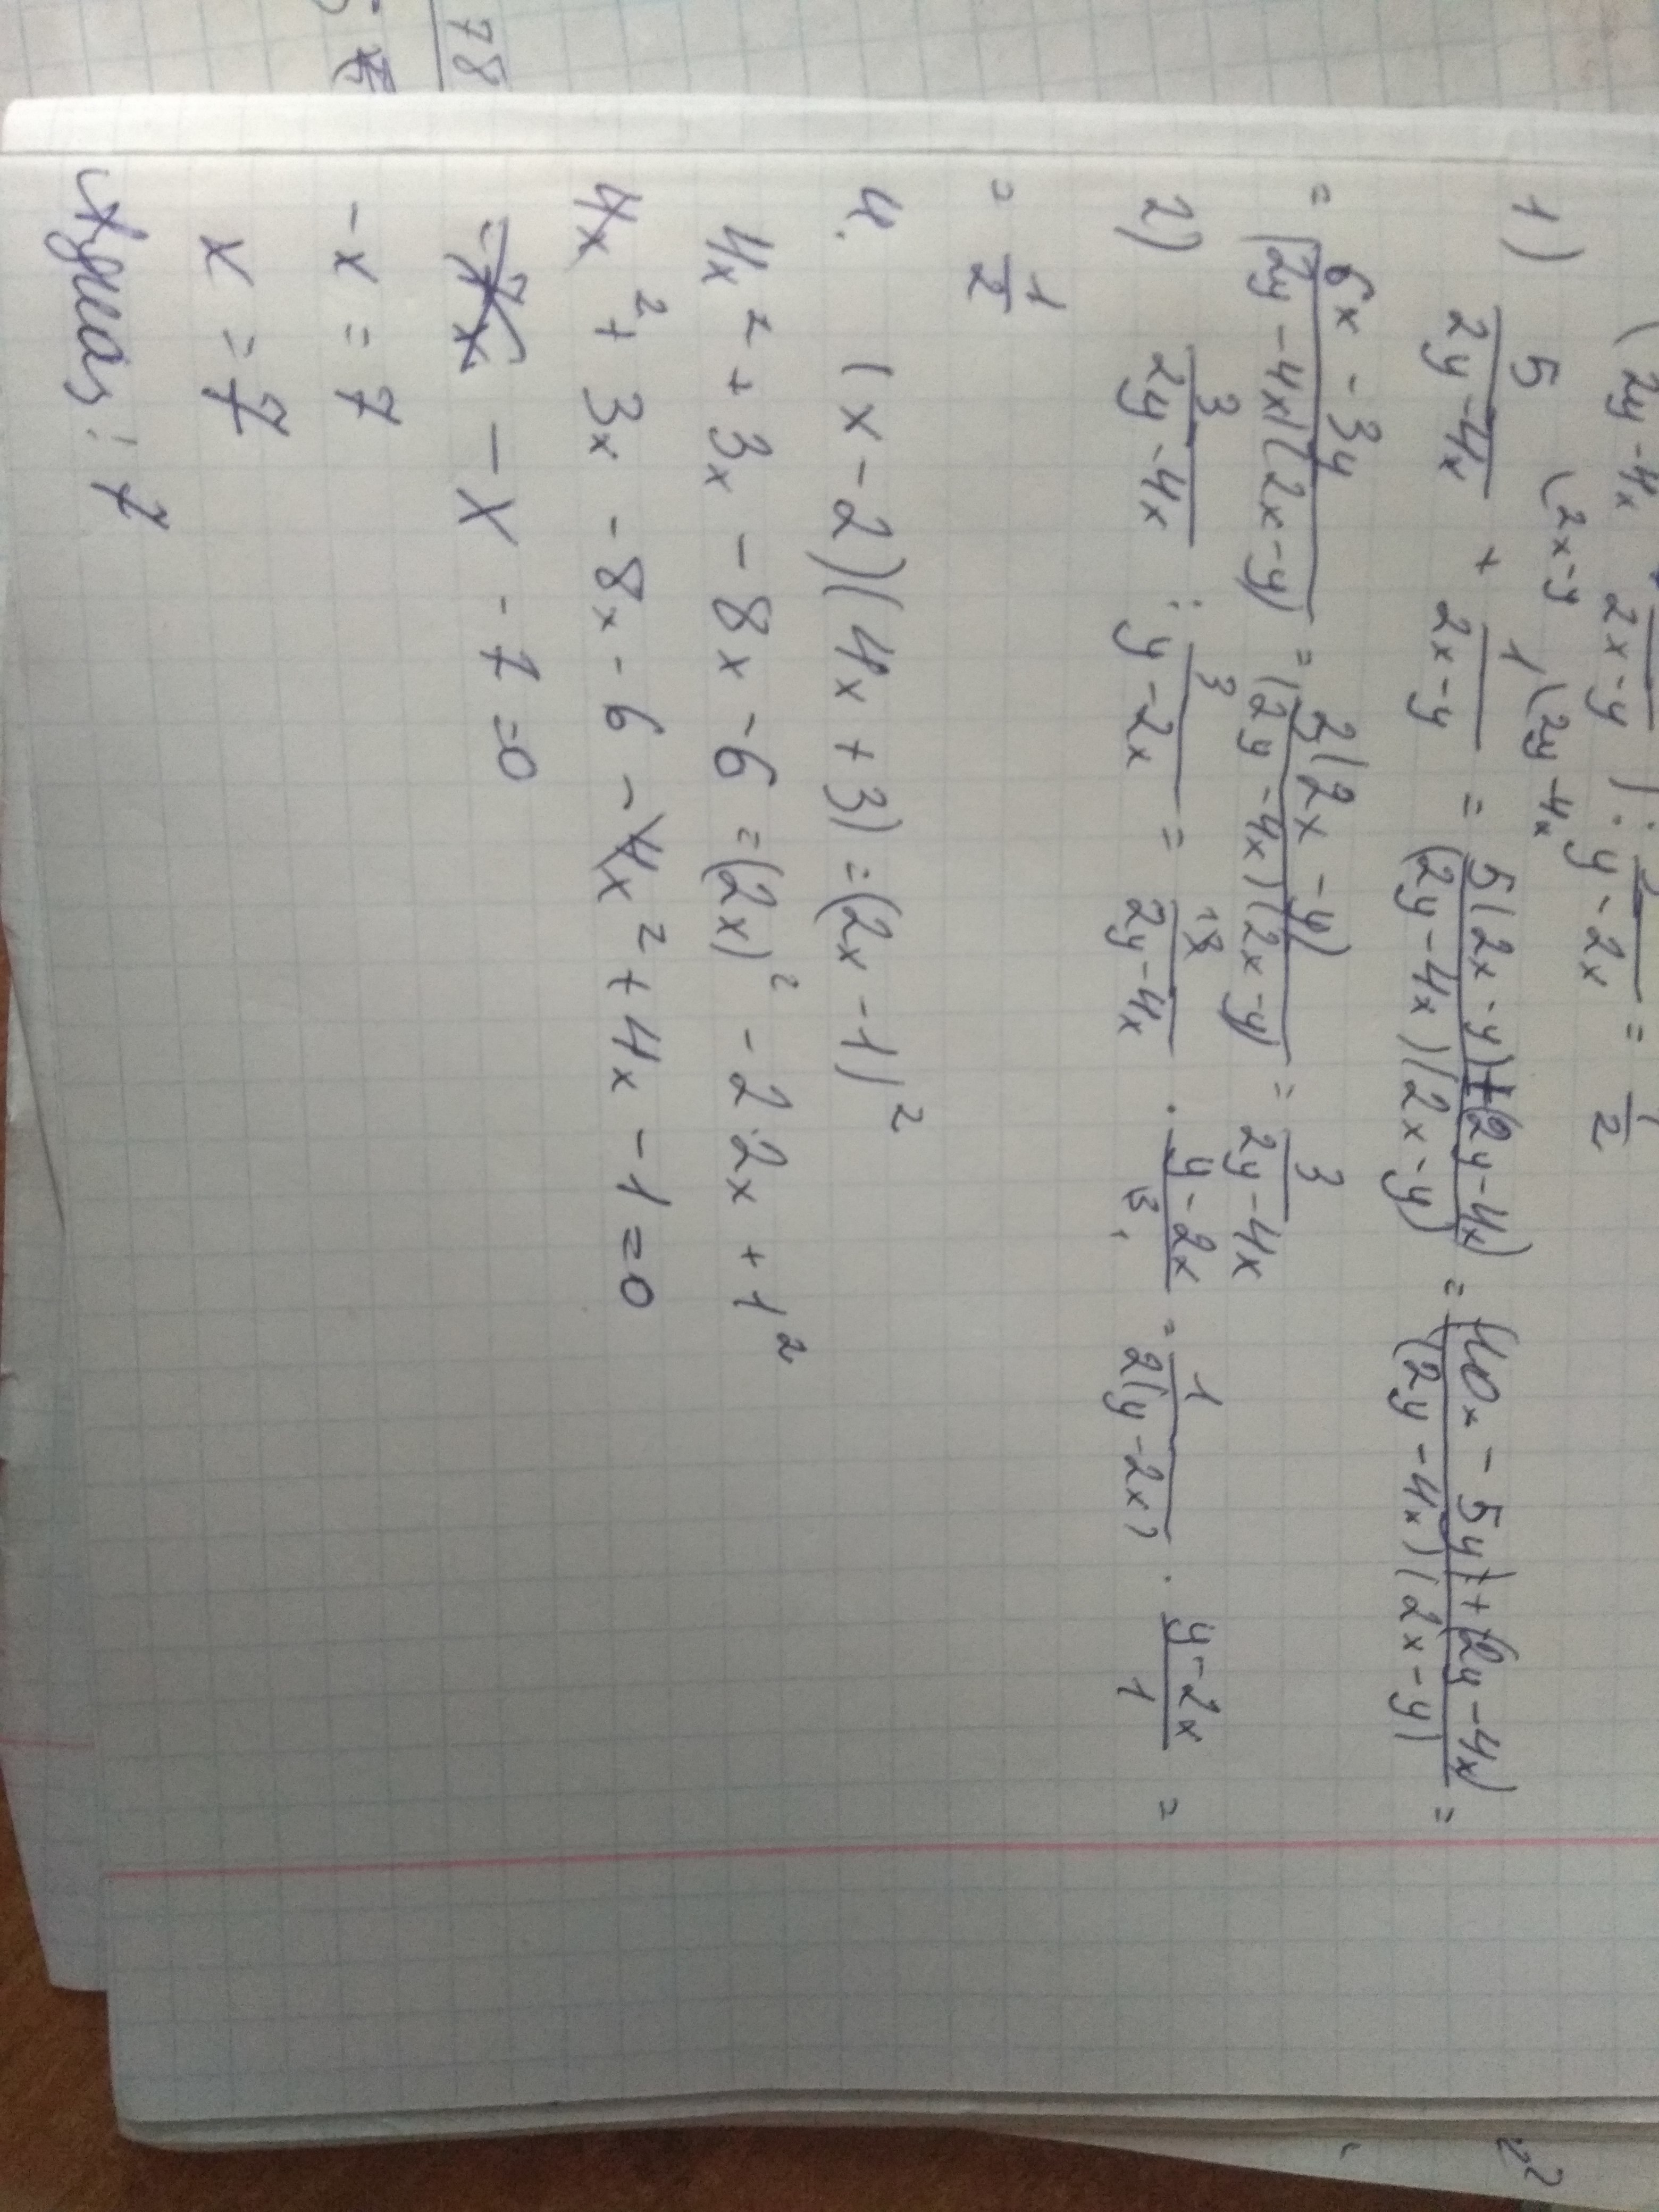 (2y-4x 2x-y) : y-2x = 1/2
(2x-y 1(2y-4x
1) 5/(2y-4x) + 1/(2x-y) = (5(2x-y)+(2y-4x))/((2y-4x)(2x-y)) = ((10x-5y)+(2y-4x))/((2y-4x)(2x-y)) =
= (6x-3y)/((2y-4x)(2x-y)) = 3(2x-y)/((2y-4x)(2x-y)) = 3/(2y-4x)
2) 3/(2y-4x) : 3/(y-2x) = 3/(2y-4x) · (y-2x)/3 = 1/(2(y-2x)) · (y-2x)/1 =
= 1/2
4. (x-2)(4x+3) = (2x-1)²
4x² + 3x - 8x - 6 = (2x)² - 2·2x + 1²
4x² + 3x - 8x - 6 - 4x² + 4x - 1 = 0
- x - 7 = 0
- x = 7
x = -7
78